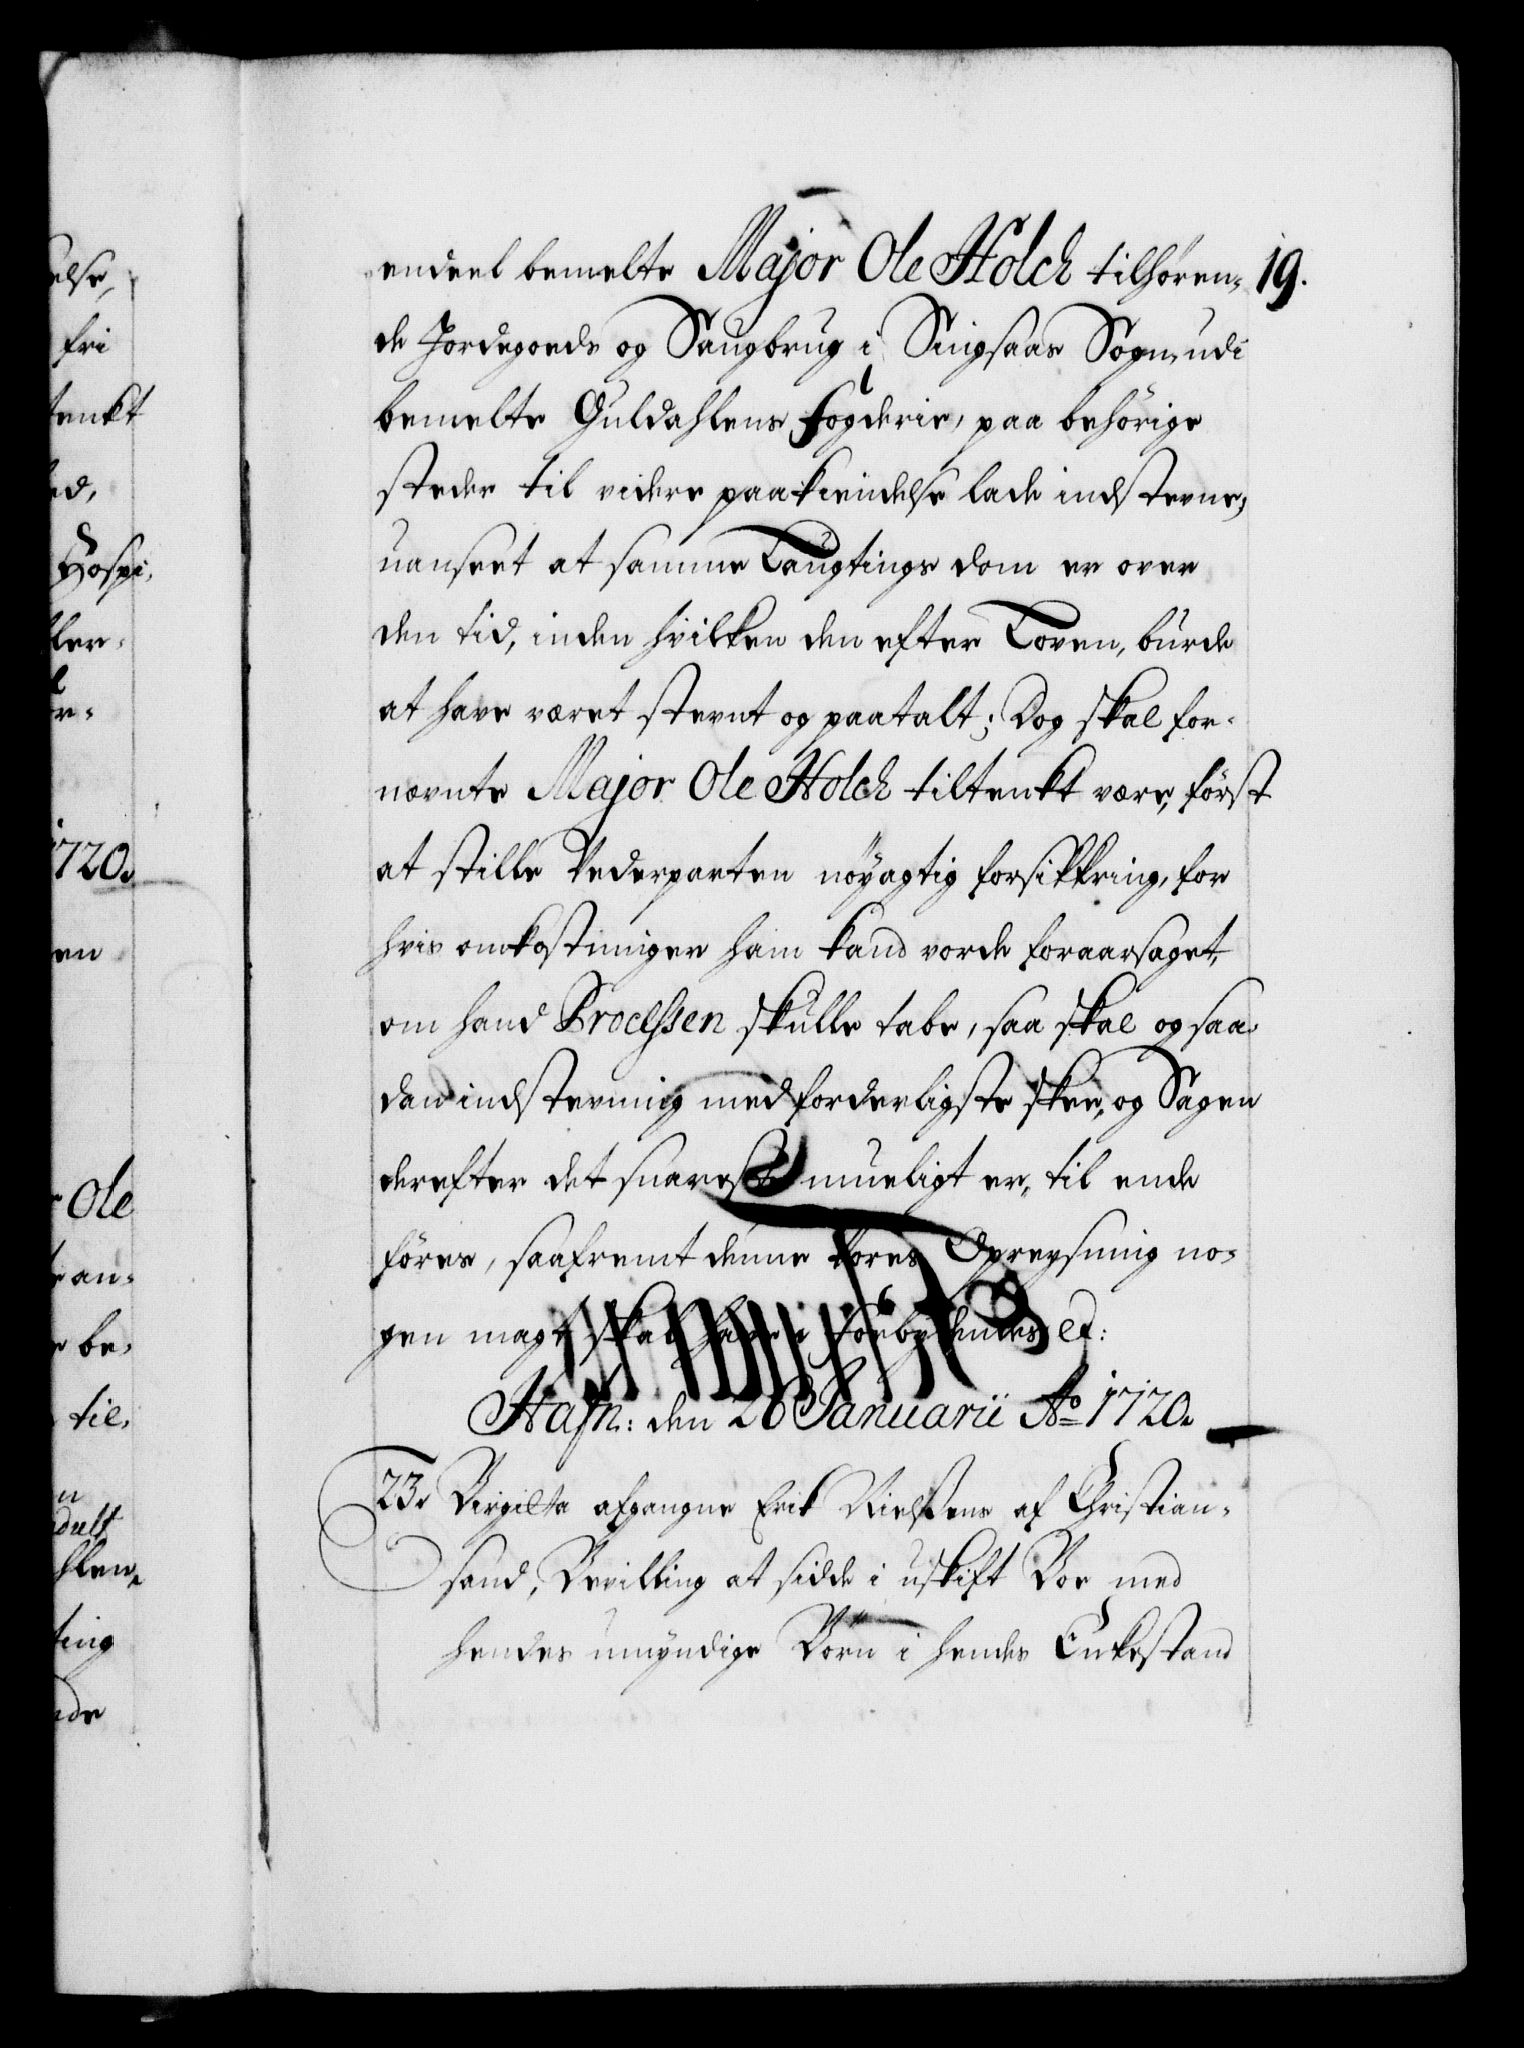 endeel bemelte Major Ole Holch tilhøren- 19.
de Jordegoeds og Saugbrug i Singsaas Sogn, udi
bemelte Guldahlens Fogderie, paa behörige
steder til videre paakiendelse lade indstevne,
uanseet at samme Laugtings dom er over
den tid, inden hvilken den efter Loven, burde
at have været stevnt og paatalt; Dog skal for-
nevnte Major Ole Holch tiltenkt være, först
at stille Vederparten nöyagtig forsikkring, for
hvis omkostninger ham kand vorde foraarsaget,
om hand Processen skulle tabe, saa skal og saa-
dan indstevning med forderligste skee, og Sagen
derefter det snareste mueligt er, til ende
föres, saafremt denne vores Opreysning no-
gen magt skal have i Forbydendes et:
Hafn: den 26 Januarii Ao 1720.
23. Birgitta afgangne Erik Nielsens af Christian-
sand, Bevilling at sidde i uskift Boe med
hendes umyndige Börn i hendes Enkestand
else,
fri
tenkt
ed,
Hospi-
ler-
or-
1720.
en
r Ole
e an-
e be-
til,
n
dult
hlen,
ting
ede